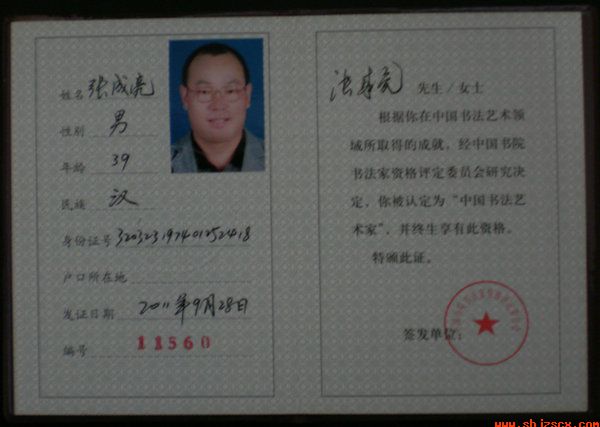 姓名 张成亮
性别 男
年龄 39
民族 汉
身份证号 320323197401252418
户口所在地
发证日期 2011年9月28日
编号 11560
张成亮 先生/女士
根据你在中国书法艺术领
域所取得的成就，经中国书院
书法家资格评定委员会研究决
定，你被认定为“中国书法艺
术家”，并终生享有此资格。
特颁此证。
签发单位：
www.shjzscx.com